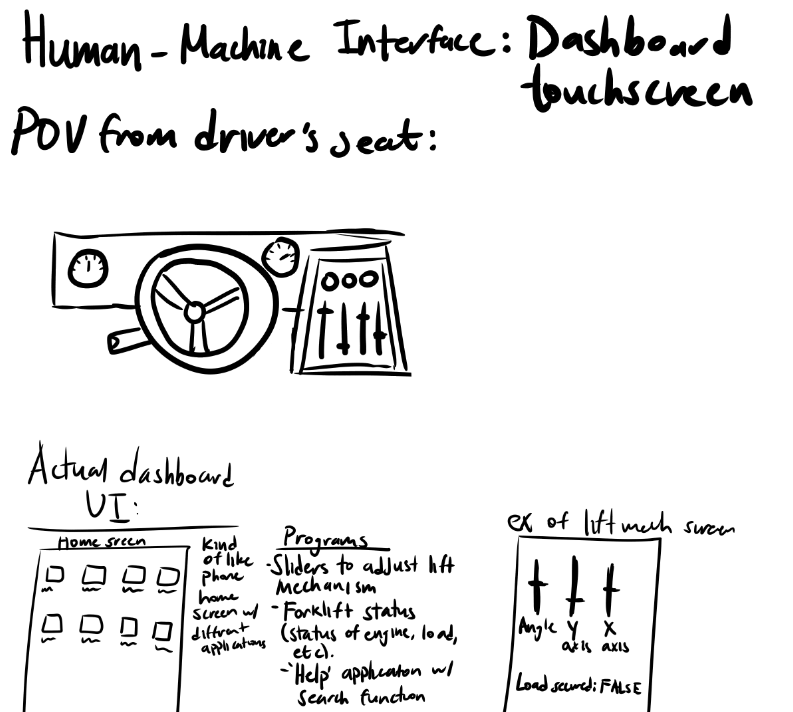 Human-Machine Interface: Dashboard
touchscreen
POV from driver's seat:
Actual dashboard
UI:
Home sreen
Kind
of like
phone
home
screen w/
different
applications
Programs
-Sliders to adjust lift
mechanism
-Forklift status
(status of engine, load,
etc).
-'Help' application w/
search function
ex of lift mech screen
Angle Y X
axis axis
Load secured: FALSE